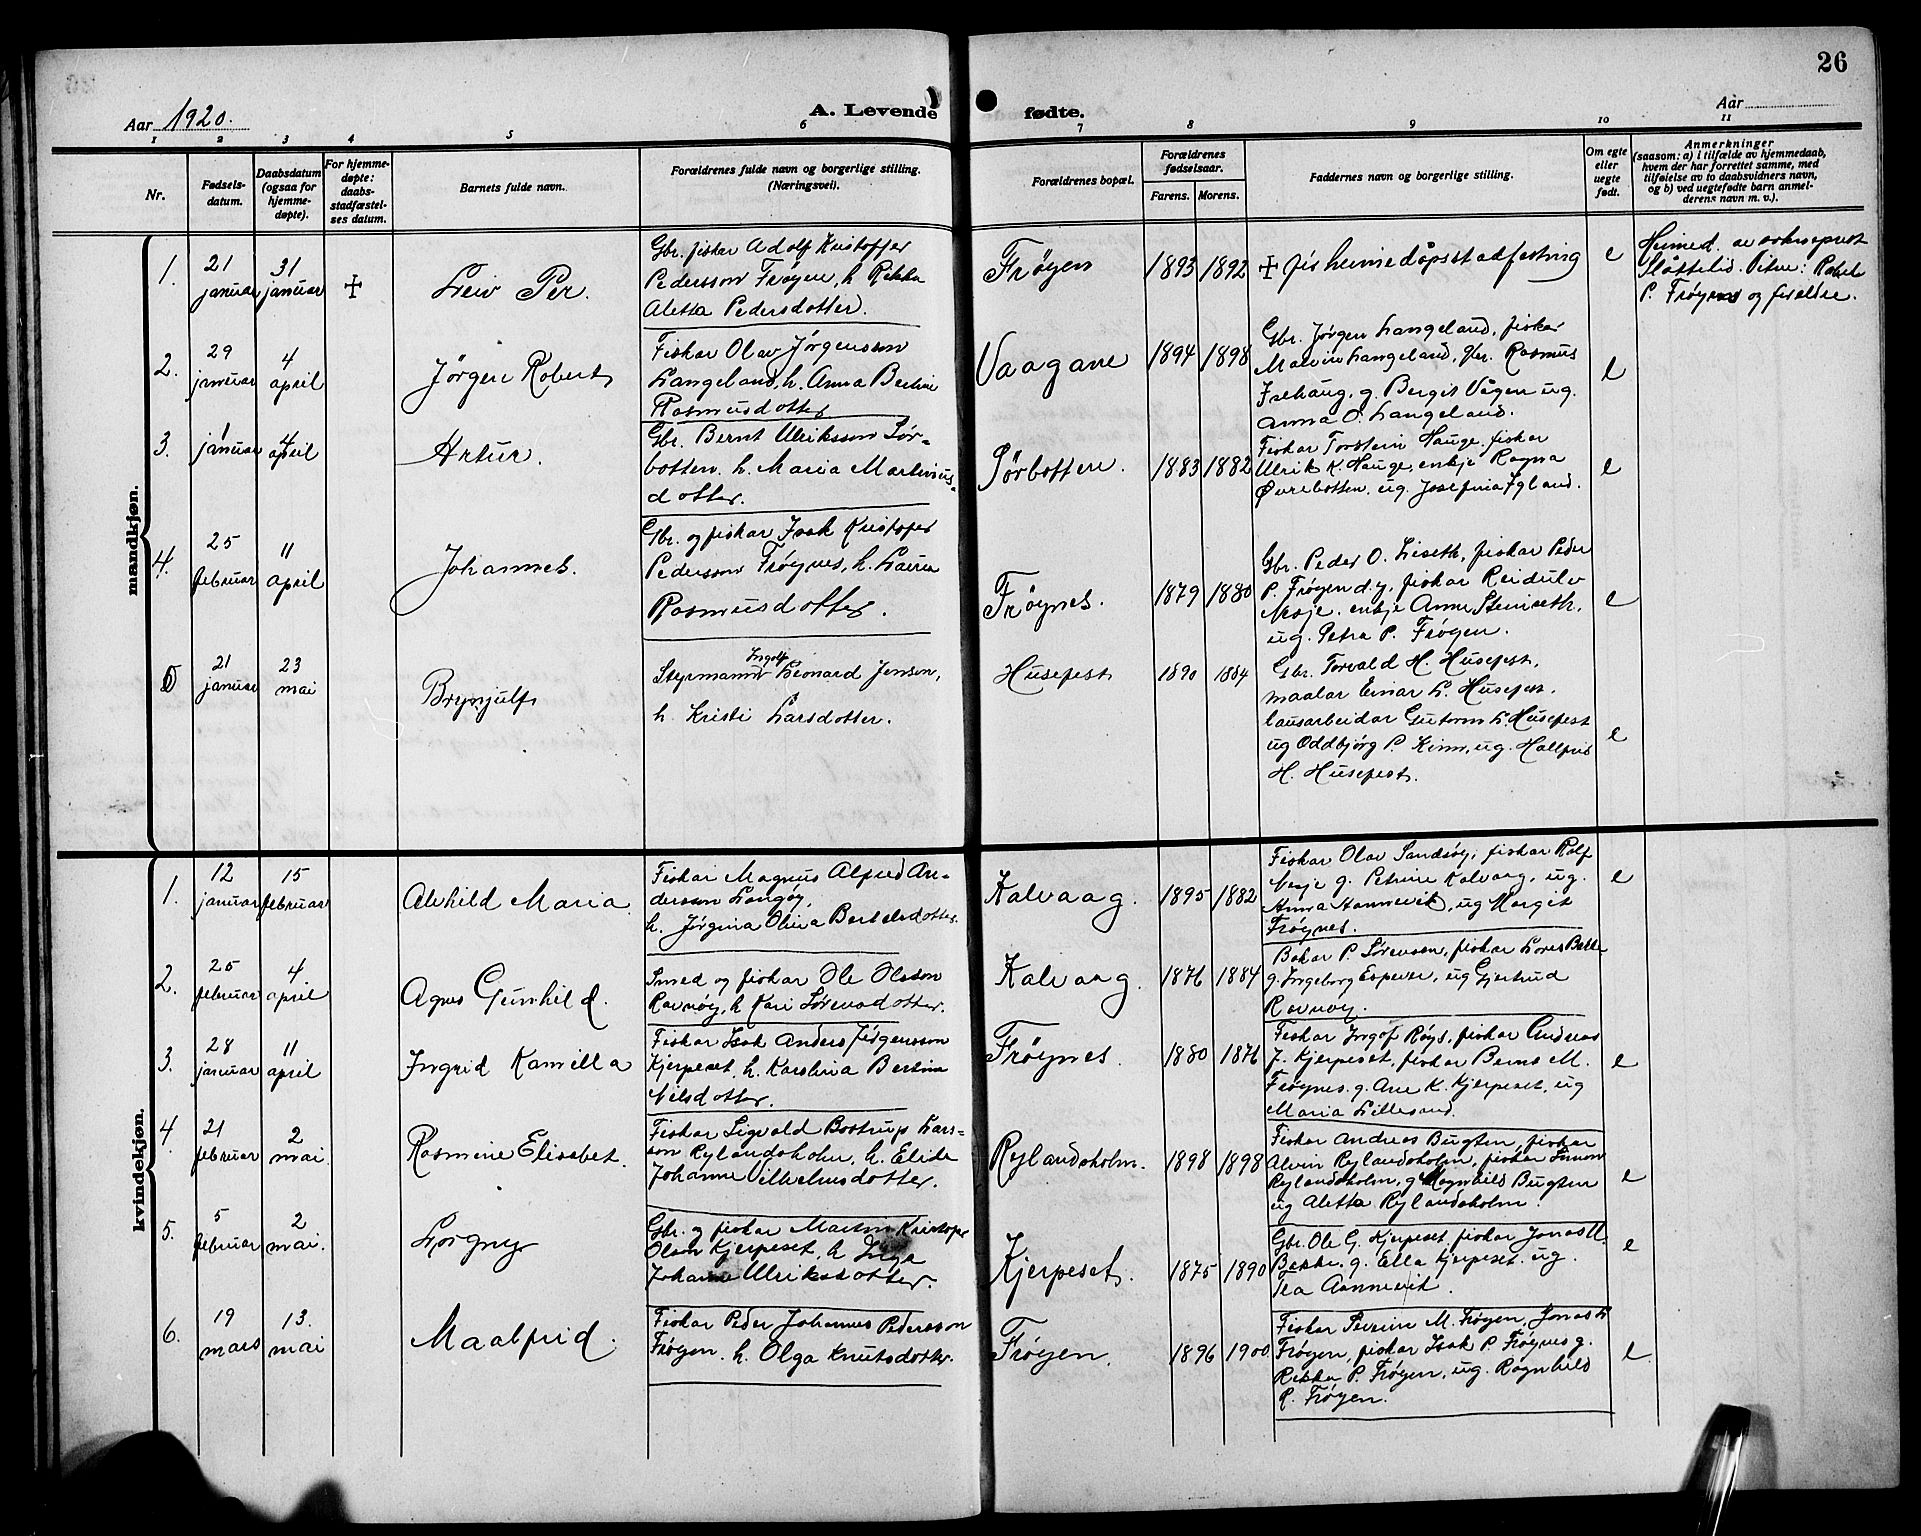 26
Aar 1920.
A. Levende fødte.
Aar
1 2 3 4 5 6 7 8 9 10 11
Nr.
Fødsels-
datum.
Daabsdatum
(ogsaa for
hjemme-
døpte).
For hjemme-
døpte:
daabs-
stadfæstel-
ses datum.
Barnets fulde navn.
Forældrenes fulde navn og borgerlige stilling.
(Næringsvei).
Forældrenes bopæl.
Forældrenes
fødselsaar.
Farens. Morens.
Faddernes navn og borgerlige stilling.
Om egte
eller
uegte
født.
Anmerkninger
(saasom: a) i tilfælde av hjemmedaab,
hvem der har forrettet samme, med
tilføielse av to daabsvidners navn,
og b) ved uegtefødte barn anmel-
derens navn m. v.).
mandkjøn.
1.
21
januar
31
januar
+
Leiv Per.
Gbr. fiskar Adolf Kristoffer
Pedersson Frøyen, h. Rikka
Aletta Pedersdotter.
Frøyen
1893 1892
+ fis heimedåpsstadfesting
e
Heimed. av sokneprest
Slåttelid. Vitne:
P. Frøynes og foreldre.
2.
29
januar
4
april
Jørgen Robert
Fiskar Olav Jørgensson
Langeland, h. Anna Bertine
Rasmusdotter
Vaagane
1894 1898
Gbr. Jørgen Langeland, fiskar
Malvin Langeland, gbr. Rasmus
Indrehaug, g. Bergit Vågen ug.
Anna O. Langeland.
e
3.
1
januar
4
april
Artur.
Gbr. Bernt Ulriksson Sør-
botten, h. Maria Martinus-
dotter.
Sørbotten.
1883 1882
Fiskar Torstein Hauge, fiskar
Ulrik K. Hauge, enkje Ragna
Øvrebotten, ug. Josefina Igland.
e
4.
25
februar
11
april
Johannes.
Gbr. og fiskar Isak Kristofer
Pedersson Frøynes, h. Laura
Rasmusdotter.
Frøynes.
1879 1880
Gbr. Peder O. Liseth, fiskar Peder
P. Frøyen d.y, fiskar Reidulv
Nesje, enkje Anne Steinseth,
ug. Petra P. Frøyen.
e
5
21
januar
23
mai
Brynjulf
Ingolf
Styrmann Leonard Jensen,
h. Kristi Larsdotter.
Husefest
1890 1884
Gbr. Torvald H. Husefest,
maalar Einar L. Husefest,
lausarbeidar Gutorm L. Husefest
ug Oddbjørg P. Kinn, ug. Hallfrid
H. Husefest.
e
kvindekjøn.
1.
12
januar
15
februar
Alvhild Maria
Fiskar Magnus Alfred An-
dersson Langøy,
h. Jørgina Olivia Bertelsdotter
Kalvaag.
1895 1882
Fiskar Olav Sandsøy, fiskar Rolf
Nesje g. Petrine Kalvaag, ug.
Anna Hannevik, ug Margit
Frøynes.
e
2.
25
februar
4
april
Agnes Gunhild.
Smed og fiskar Ole Olsson
Ravnøy, h Kari Sørensdotter.
Kalvaag.
1876 1884
Bakar P. Sørensen, fiskar Lars Bakke
g. Ingeborg Espeser, ug Gjertrud
Ravnøy.
3.
28
januar
11
april
Ingrid Kamilla
Fiskar Isak Anders Jørgensson
Kjerpeset, h. Karolina Bertine
Nilsdotter.
Frøynes.
1880 1876
Fiskar Ingolf Røys, fiskar Andreas
J. Kjerpeset, fiskar Berns M.
Frøynes. g. Ane K. Kjerpeset, ug
Maria Lillesund.
e
4
21
februar
2
mai
Rasmine Elisabet.
Fiskar Sigvald Bostrup Lars-
son Rylandsholm, h. Elida
Johanne Vilhelmsdotter.
Rylandsholm.
1898 1898
Fiskar Andreas Bugten, fiskar
Alvin Rylandsholm, fiskar Simon
Rylandsholm, g Magnhild Bugten
ug Aletta Rylandsholm.
e
5.
5
februar
2
mai.
Lorgny
Gbr. og fiskar Martin Kristofer
Olsen Kjerpeset, h Inga
Johanne Ulriksdotter.
Kjerpeset.
1875 1890
Gbr. Ole G. Kjerpeset, fiskar Jonas U.
Bakke. g. Ella Kjerpeset. ug.
Tea Aannevik.
e
6.
19
mars
13.
mai
Maalfrid.
Fiskar Peder Johannes Pedersson
Frøyen. h. Olga Knutsdotter.
Frøyen.
1896 1900
Fiskar Severin M. Frøyen, Jonas L
Frøyen, fiskar Isak P. Frøynes g.
Rikka P. Frøyen, ug. Ragnhild
R. Frøyen.
e